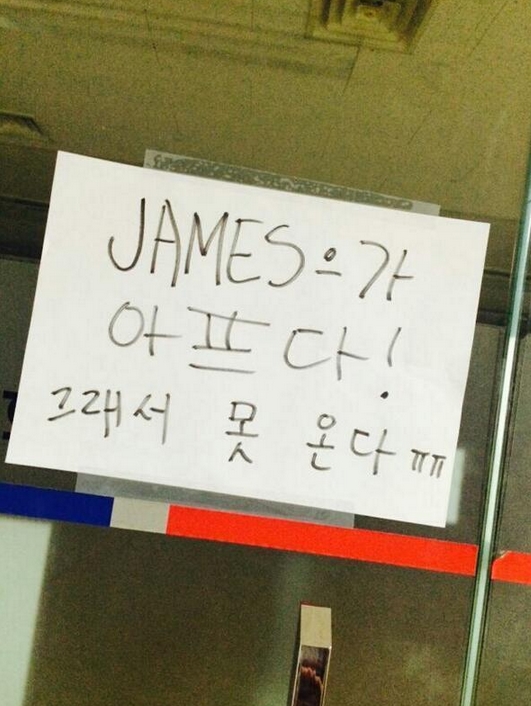 JAMES으가
아프다!
그래서 못 온다 ㅠㅠ